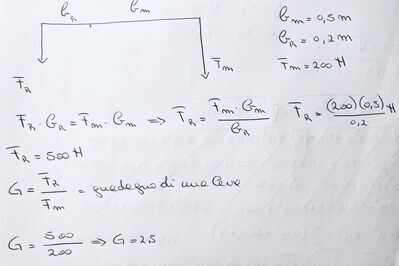 b_R b_m b_m = 0,5 m
b_R = 0,2 m
F_R F_m F_m = 200 N
F_R · b_R = F_m · b_m ⇒ F_R = F_m · b_m / b_R F_R = (200)(0,5) / 0,2 N
F_R = 500 N
G = F_R / F_m = guadagno di una leva
G = 500 / 200 ⇒ G = 2,5